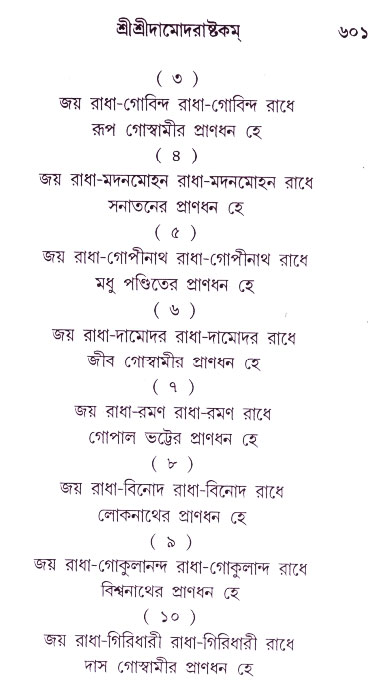 শ্রীশ্রীদামোদরাষ্টকম্ ৬০১
( ৩ )
জয় রাধা-গোবিন্দ রাধা-গোবিন্দ রাধে
রূপ গোস্বামীর প্রাণধন হে
( ৪ )
জয় রাধা-মদনমোহন রাধা-মদনমোহন রাধে
সনাতনের প্রাণধন হে
( ৫ )
জয় রাধা-গোপীনাথ রাধা-গোপীনাথ রাধে
মধু পণ্ডিতের প্রাণধন হে
( ৬ )
জয় রাধা-দামোদর রাধা-দামোদর রাধে
জীব গোস্বামীর প্রাণধন হে
( ৭ )
জয় রাধা-রমণ রাধা-রমণ রাধে
গোপাল ভট্টের প্রাণধন হে
( ৮ )
জয় রাধা-বিনোদ রাধা-বিনোদ রাধে
লোকনাথের প্রাণধন হে
( ৯ )
জয় রাধা-গোকুলানন্দ রাধা-গোকুলান্দ রাধে
বিশ্বনাথের প্রাণধন হে
( ১০ )
জয় রাধা-গিরিধারী রাধা-গিরিধারী রাধে
দাস গোস্বামীর প্রাণধন হে